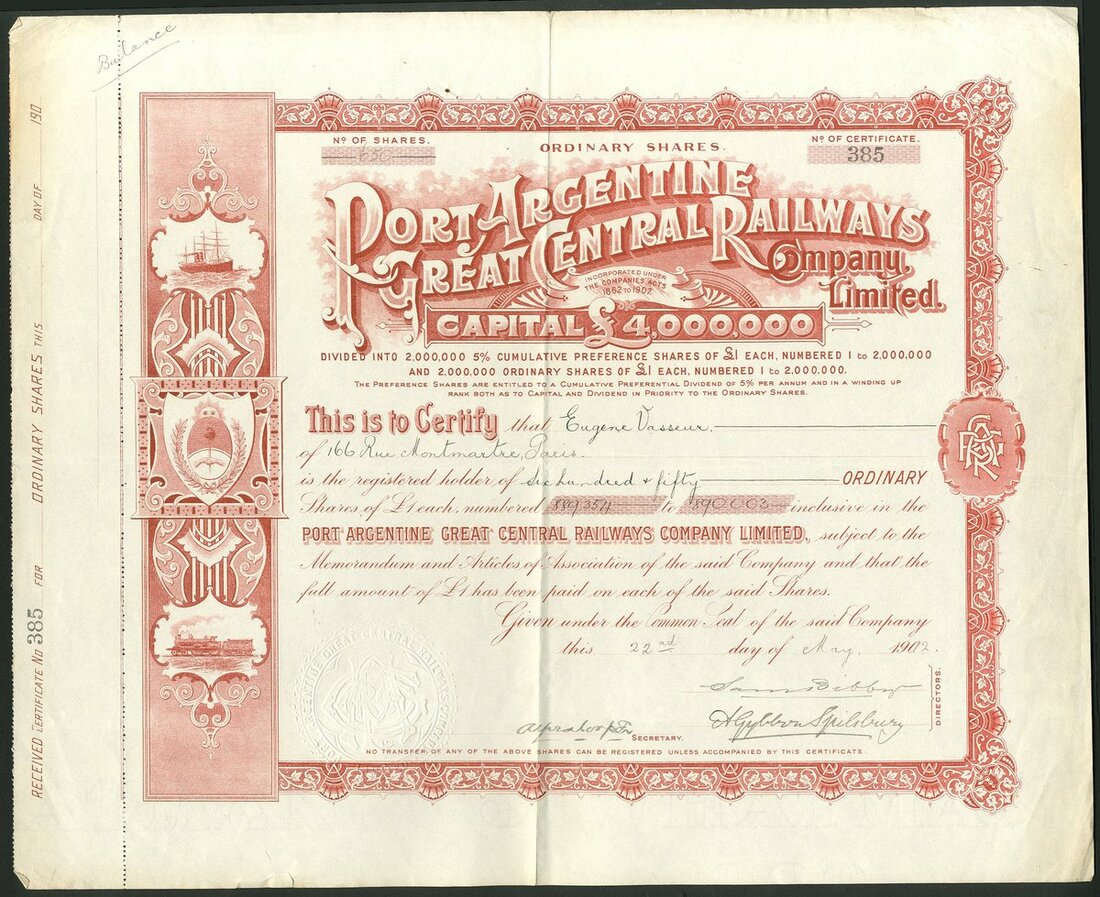 Balance
Nº OF SHARES.
650
ORDINARY SHARES.
Nº OF CERTIFICATE.
385
PORT ARGENTINE
GREAT CENTRAL RAILWAYS
Company,
Limited.
INCORPORATED UNDER
THE COMPANIES ACTS
1862 TO 1907
CAPITAL £4,000,000
DIVIDED INTO 2,000,000 5% CUMULATIVE PREFERENCE SHARES OF £1 EACH, NUMBERED 1 to 2,000,000
AND 2,000,000 ORDINARY SHARES OF £1 EACH, NUMBERED 1 to 2,000,000.
THE PREFERENCE SHARES ARE ENTITLED TO A CUMULATIVE PREFERENTIAL DIVIDEND OF 5% PER ANNUM AND IN A WINDING UP
RANK BOTH AS TO CAPITAL AND DIVIDEND IN PRIORITY TO THE ORDINARY SHARES.
This is to Certify that Eugene Vasseur,
of 166 Rue Montmartre, Paris.
is the registered holder of Six hundred & fifty ORDINARY
Shares of £1 each, numbered 889354 to 890003 inclusive in the
PORT ARGENTINE GREAT CENTRAL RAILWAYS COMPANY LIMITED, subject to the
Memorandum and Articles of Association of the said Company and that the
full amount of £1 has been paid on each of the said Shares.
Given under the Common Seal of the said Company
this 22nd day of May, 1902.
Sam Bibby
A Gybbon Spilsbury
DIRECTORS.
SECRETARY.
NO TRANSFER OF ANY OF THE ABOVE SHARES CAN BE REGISTERED UNLESS ACCOMPANIED BY THIS CERTIFICATE.
RECEIVED CERTIFICATE No 385 FOR ORDINARY SHARES THIS DAY OF 190